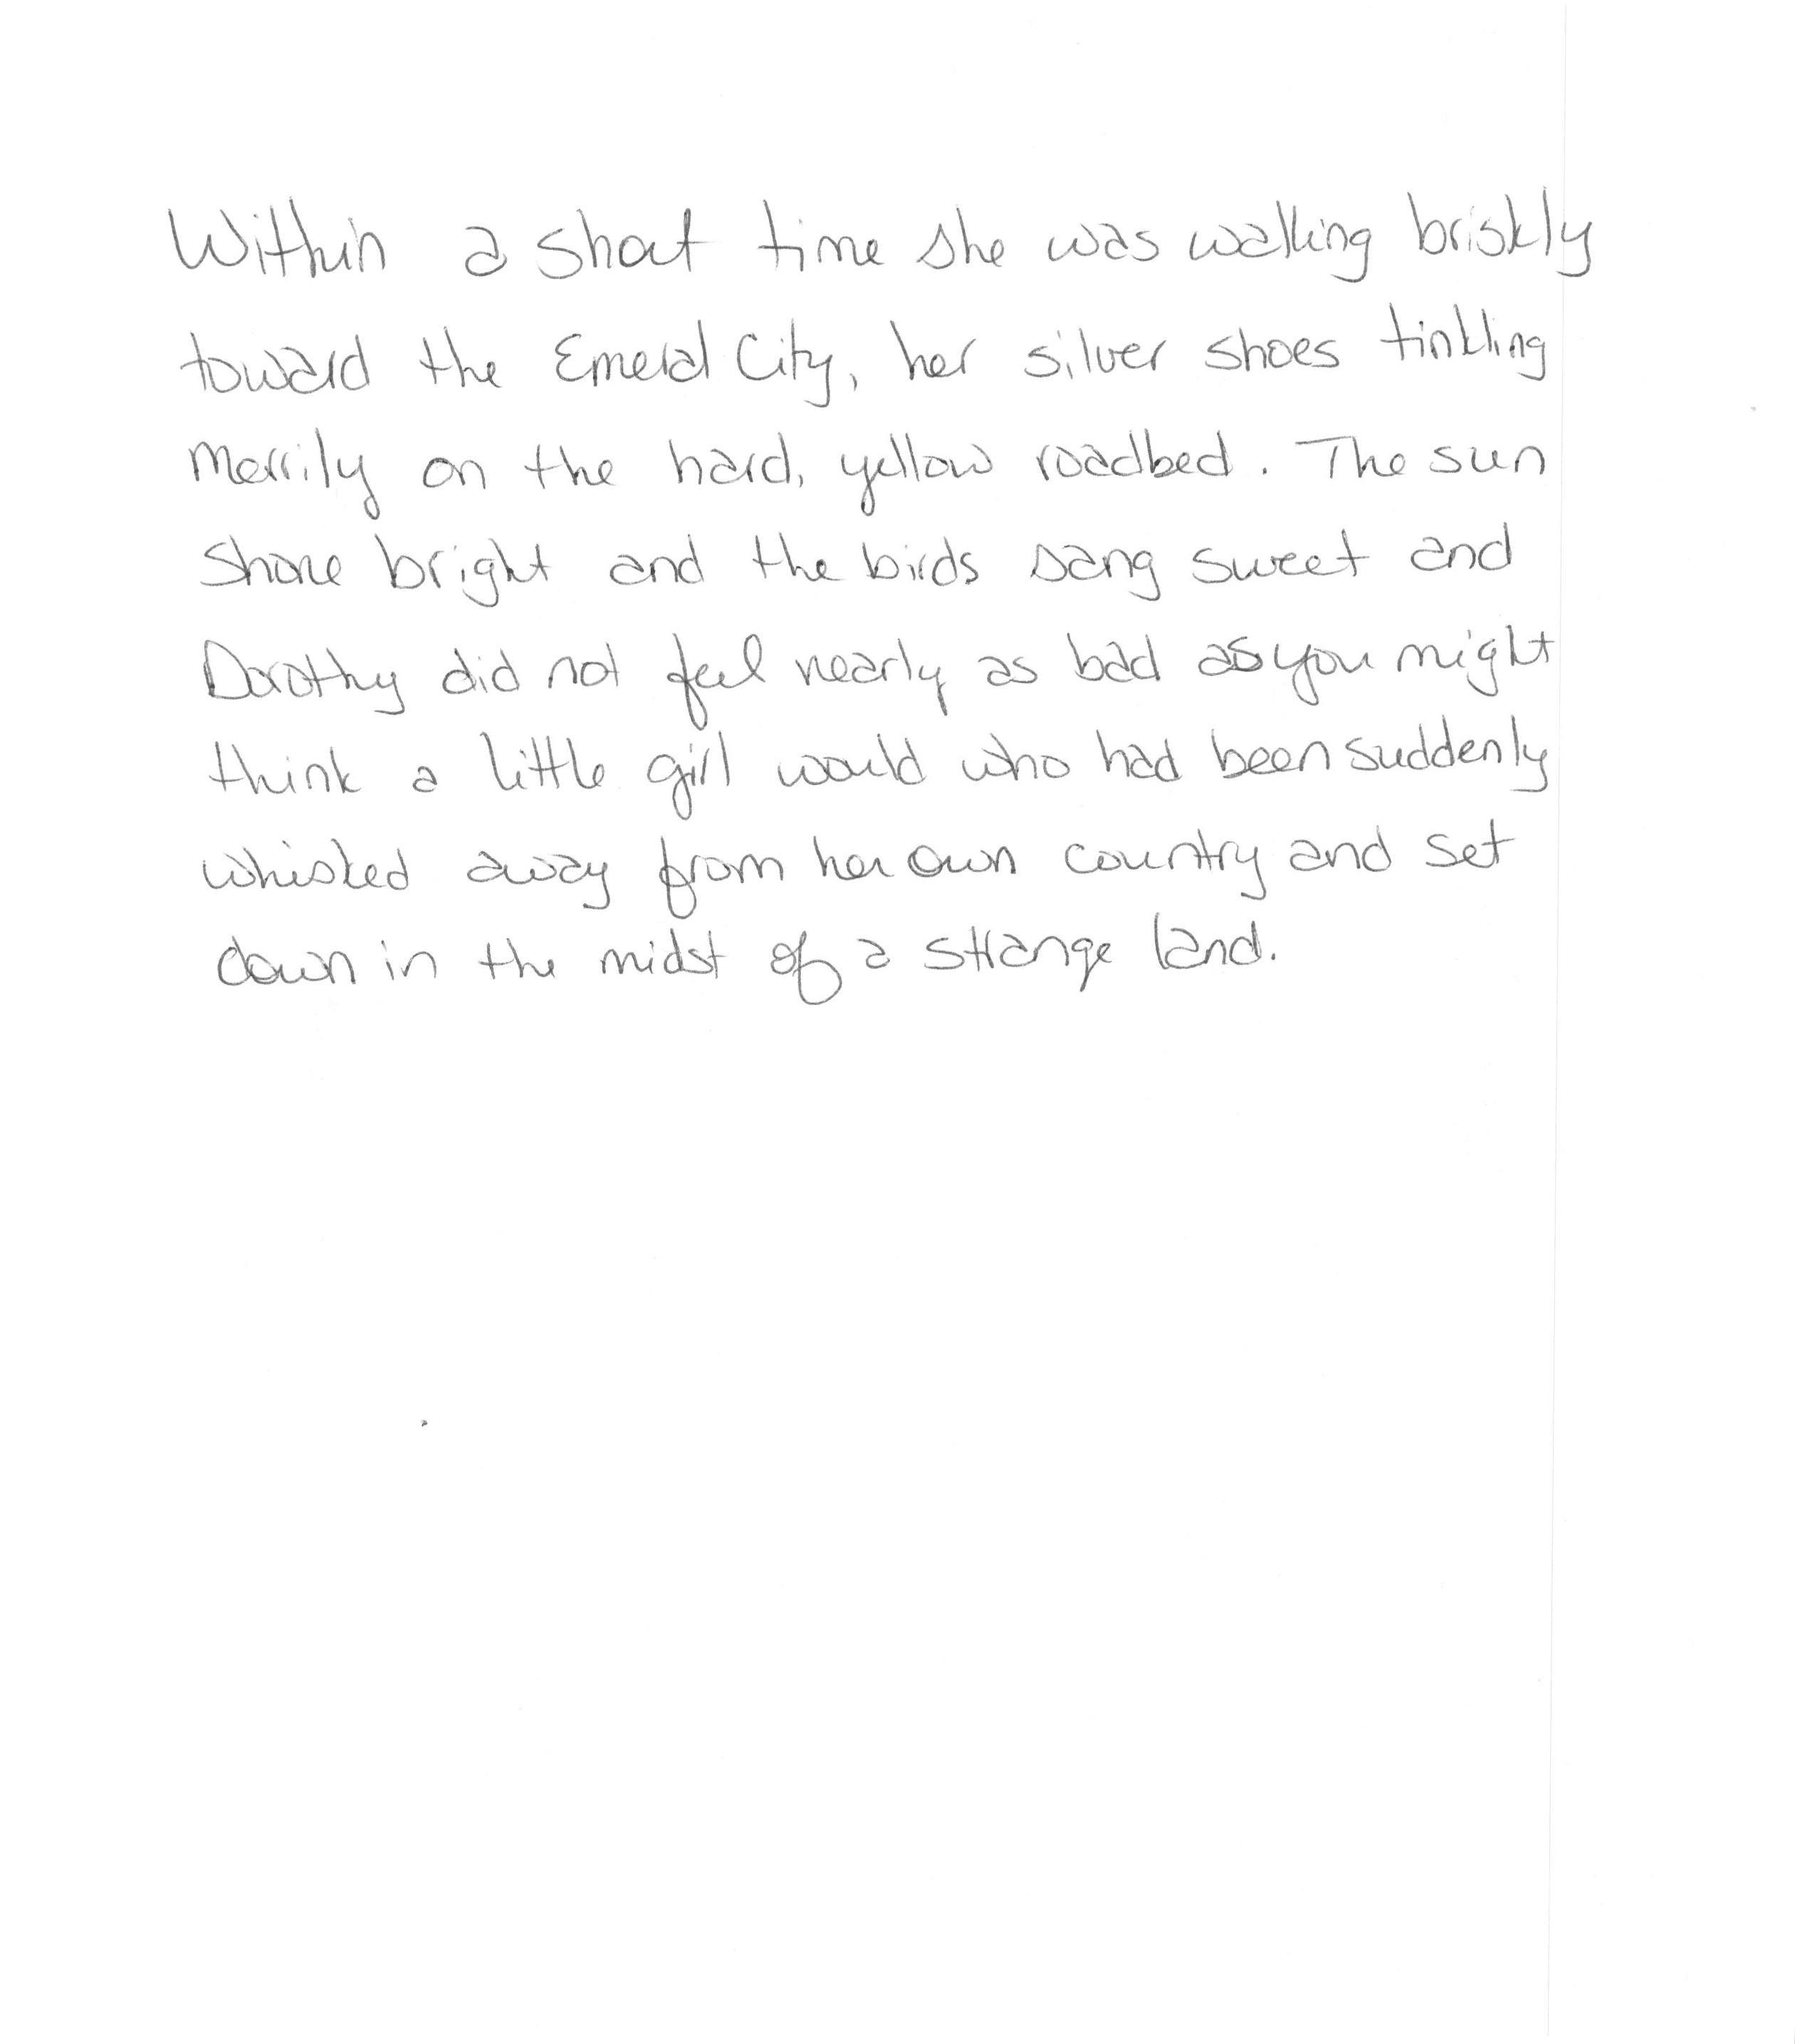 Within a short time she was walking briskly
toward the Emerald City, her silver shoes tinkling
merrily on the hard, yellow roadbed. The sun
shone bright and the birds sang sweet and
Dorothy did not feel nearly as bad as you might
think a little girl would who had been suddenly
whisked away from her own country and set
down in the midst of a strange land.